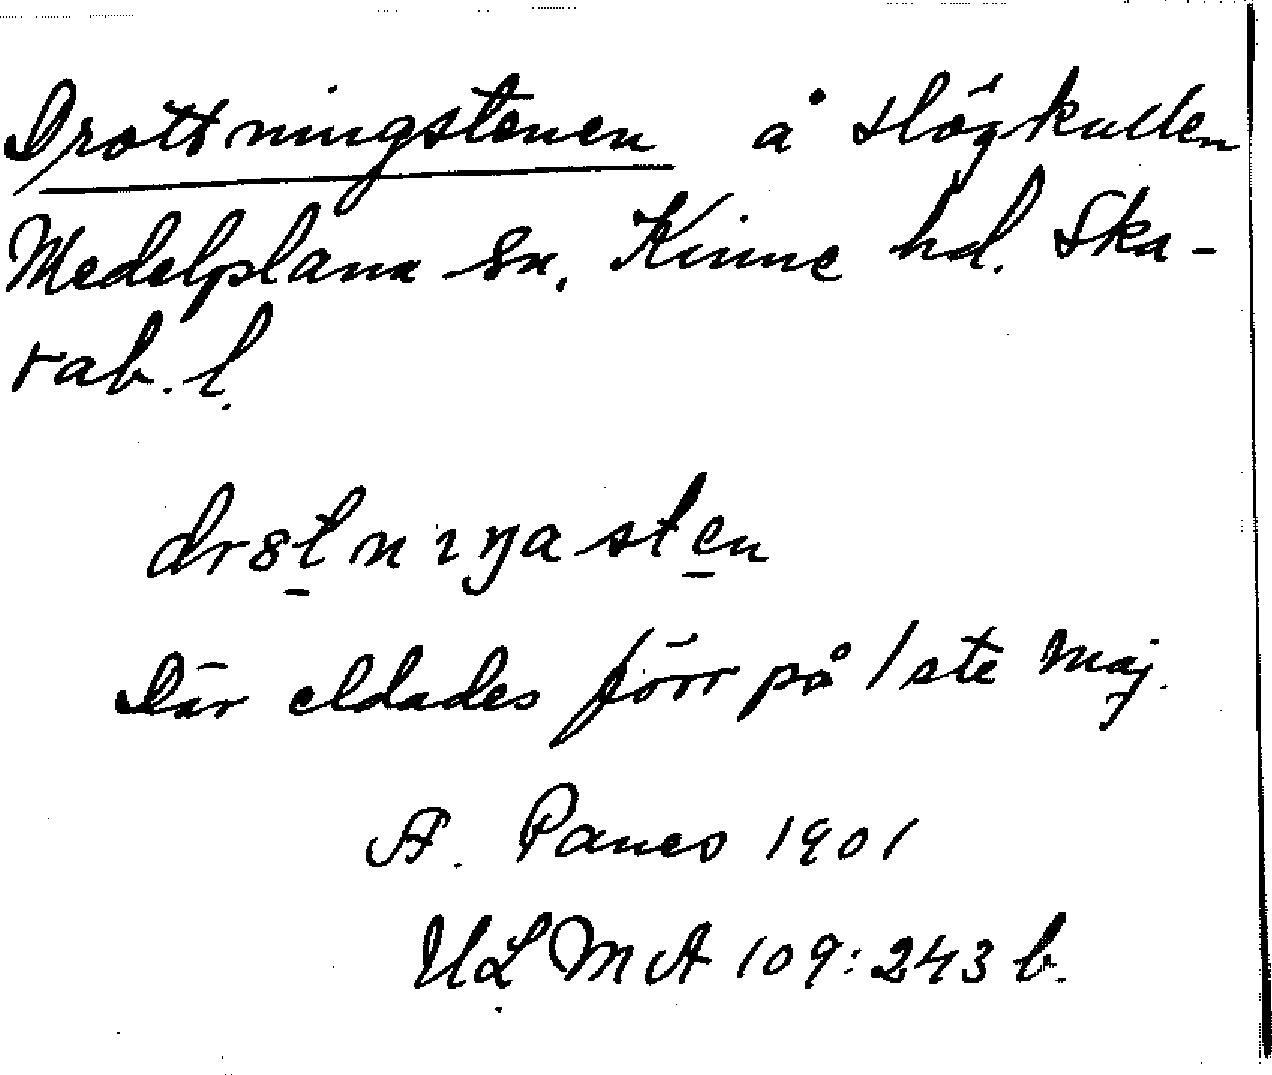 Drottningstenen å Högkullen
Medelplana sn. Kinne hd. Ska-
rab. l.
dr8t̲nıŋaste̲n
Där eldades förr på 1ste maj.
A. Paues 1901
ULMA 109:243 b.